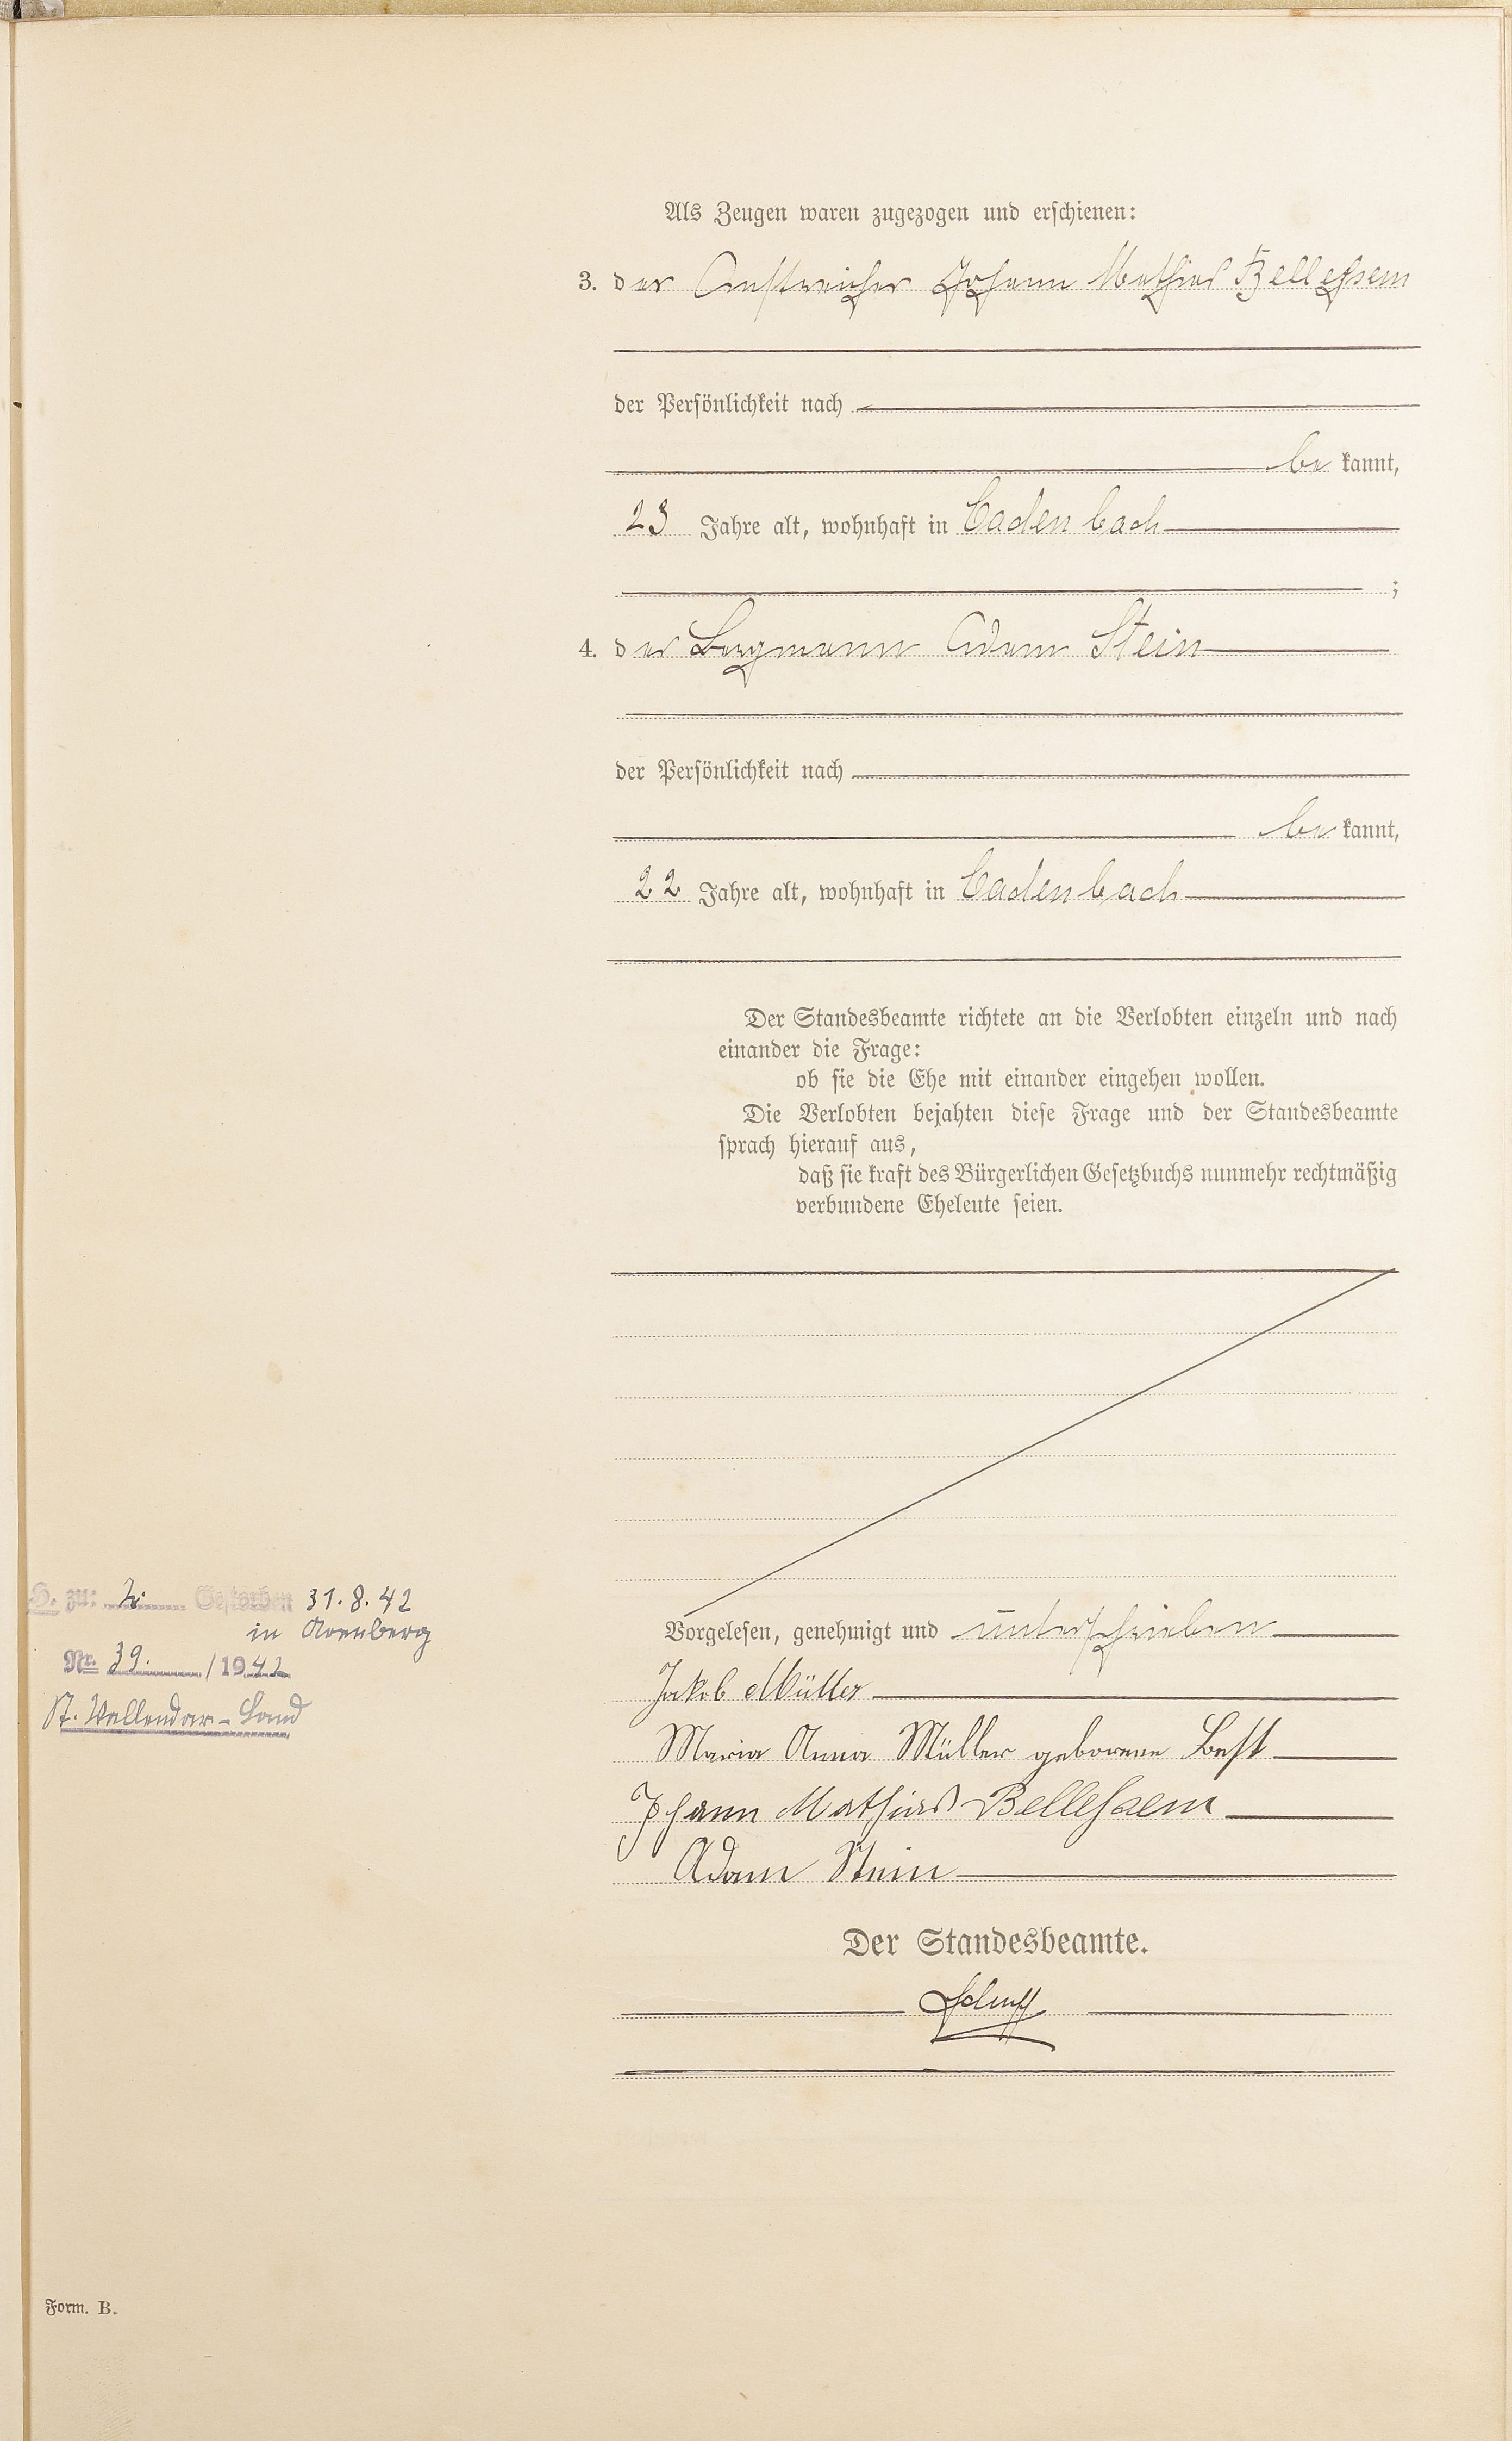 Als Zeugen waren zugezogen und erschienen:
3. der Anstreicher Johann Mathias Bellehsem
der Persönlichkeit nach
be kannt,
23 Jahre alt, wohnhaft in Cadenbach
;
4. der Bergmann Adam Stein
der Persönlichkeit nach
be kannt,
22 Jahre alt, wohnhaft in Cadenbach
Der Standesbeamte richtete an die Verlobten einzeln und nach
einander die Frage:
ob sie die Ehe mit einander eingehen wollen.
Die Verlobten bejahten diese Frage und der Standesbeamte
sprach hierauf aus,
daß sie kraft des Bürgerlichen Gesetzbuchs nunmehr rechtmäßig
verbundene Eheleute seien.
Vorgelesen, genehmigt und unterschrieben
Jakob Müller
Maria Anna Müller geborene Best
Johann Mathias Bellehsem
Adam Stein
Der Standesbeamte.
zu: Gestorben 31.8.42
in Arenberg
Nr. 39. / 1942
St. Vallendar-Land
Form. B.